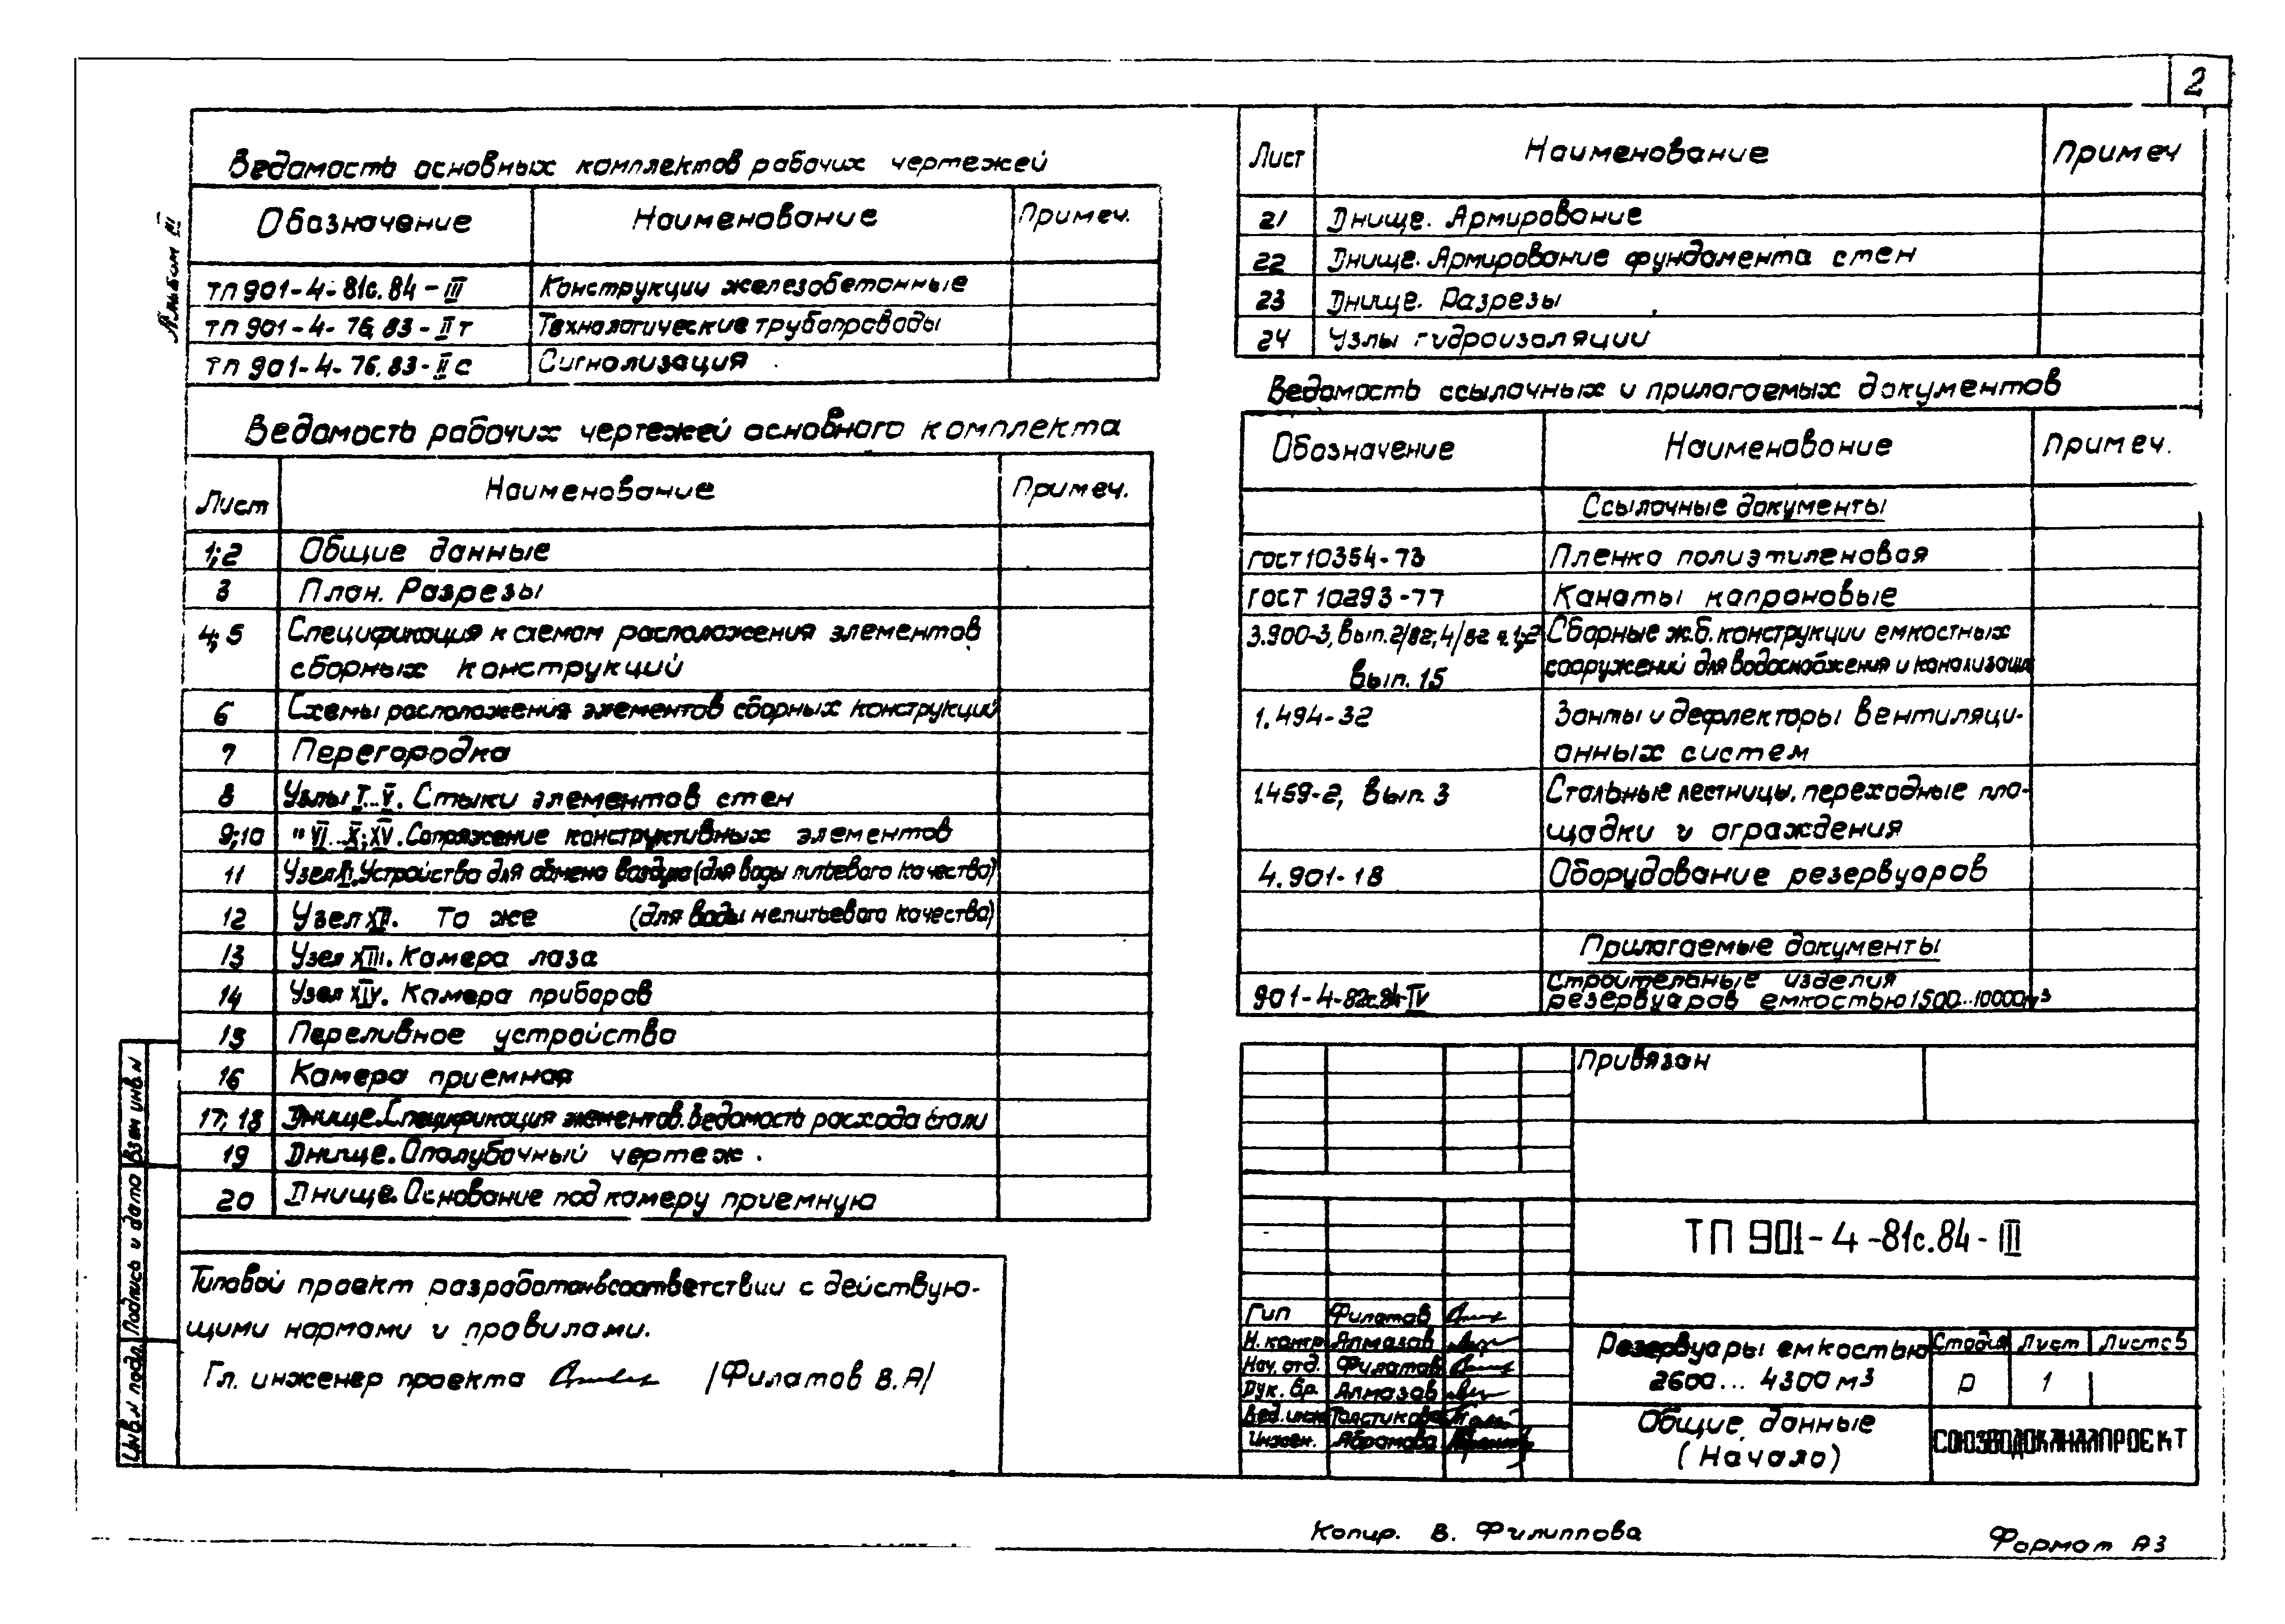 2
Альбом III
Ведомость основных комплектов рабочих чертежей
Обозначение Наименование Примеч.
ТП 901-4-81с.84-III Конструкции железобетонные
ТП 901-4-76.83-IIт Технологические трубопроводы
ТП 901-4-76.83-IIс Сигнализация
Ведомость рабочих чертежей основного комплекта
Лист Наименование Примеч.
1;2 Общие данные
3 План. Разрезы
4;5 Спецификация к схемам расположения элементов
сборных конструкций
6 Схемы расположения элементов сборных конструкций
7 Перегородка
8 Узлы I...V. Стыки элементов стен
9;10 " VI...X;XV. Сопряжение конструктивных элементов
11 Узел XI. Устройство для обмена воздуха (для воды питьевого качества)
12 Узел XII. То же (для воды непитьевого качества)
13 Узел XIII. Камера лаза
14 Узел XIV. Камера приборов
15 Переливное устройство
16 Камера приемная
17;18 Днище. Спецификация элементов. Ведомость расхода стали
19 Днище. Опалубочный чертеж.
20 Днище. Основание под камеру приемную
Типовой проект разработан в соответствии с действую-
щими нормами и правилами.
Гл. инженер проекта /Филатов В.А/
Взам инв. N
Подпись и дата
Инв. N подл.
Лист Наименование Примеч
21 Днище. Армирование
22 Днище. Армирование фундамента стен
23 Днище. Разрезы
24 Узлы гидроизоляции
Ведомость ссылочных и прилагаемых документов
Обозначение Наименование Примеч.
Ссылочные документы
ГОСТ 10354-73 Пленка полиэтиленовая
ГОСТ 10293-77 Канаты капроновые
3.900-3, вып. 2/82; 4/82 ч.1;2 Сборные ж.б. конструкции емкостных
вып. 15 сооружений для водоснабжения и канализации
1.494-32 Зонты и дефлекторы вентиляци-
онных систем
1.459-2, вып. 3 Стальные лестницы, переходные пло-
щадки и ограждения
4.901-18 Оборудование резервуаров
Прилагаемые документы
901-4-82с.84-IV Строительные изделия
резервуаров емкостью 1500...10000м3
Привязан
ТП 901-4-81с.84-III
Гип Филатов
Н. контр Алмазов
Нач. отд. Филатов
Рук. бр. Алмазов
Вед. инж Толстикова
Инжен. Абрамова
Резервуары емкостью
2600... 4300 м3
Стадия Лист Листов
Р 1
Общие данные
(Начало)
СОЮЗВОДОКАНАЛПРОЕКТ
Копир. В. Филиппова
Формат А3